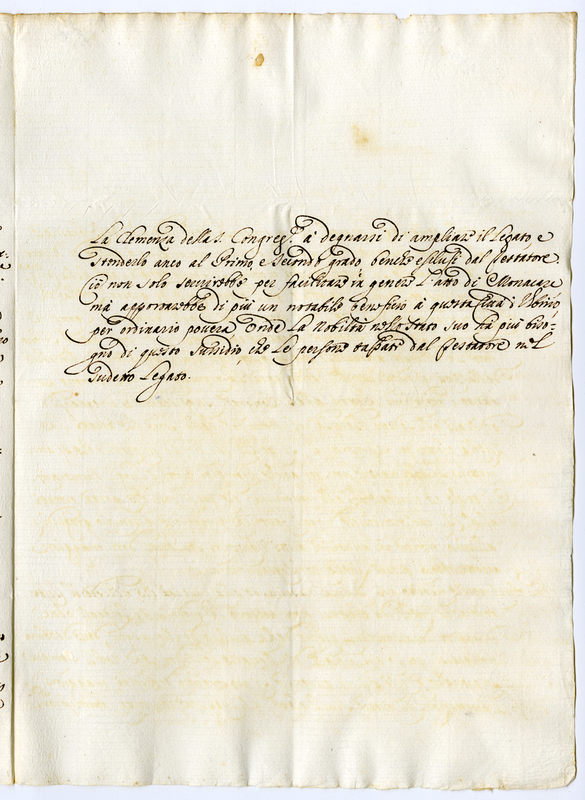 La Clemenza della S. Congreg.ne à degnarsi di ampliare il Legato, e
stenderlo anco al Primo, e Secondo grado benche esclusi dal Testatore
ciò non solo servirebbe per facilitare in genere l'atto di Monacare
mà apporterebbe di più un notabile benefitio à questa Città
per ordinario povera onde La Nobiltà nello Stato suo hà più biso=
gno di questo sussidio, che Le persone tassate dal Testatore nel
sudetto Legato.